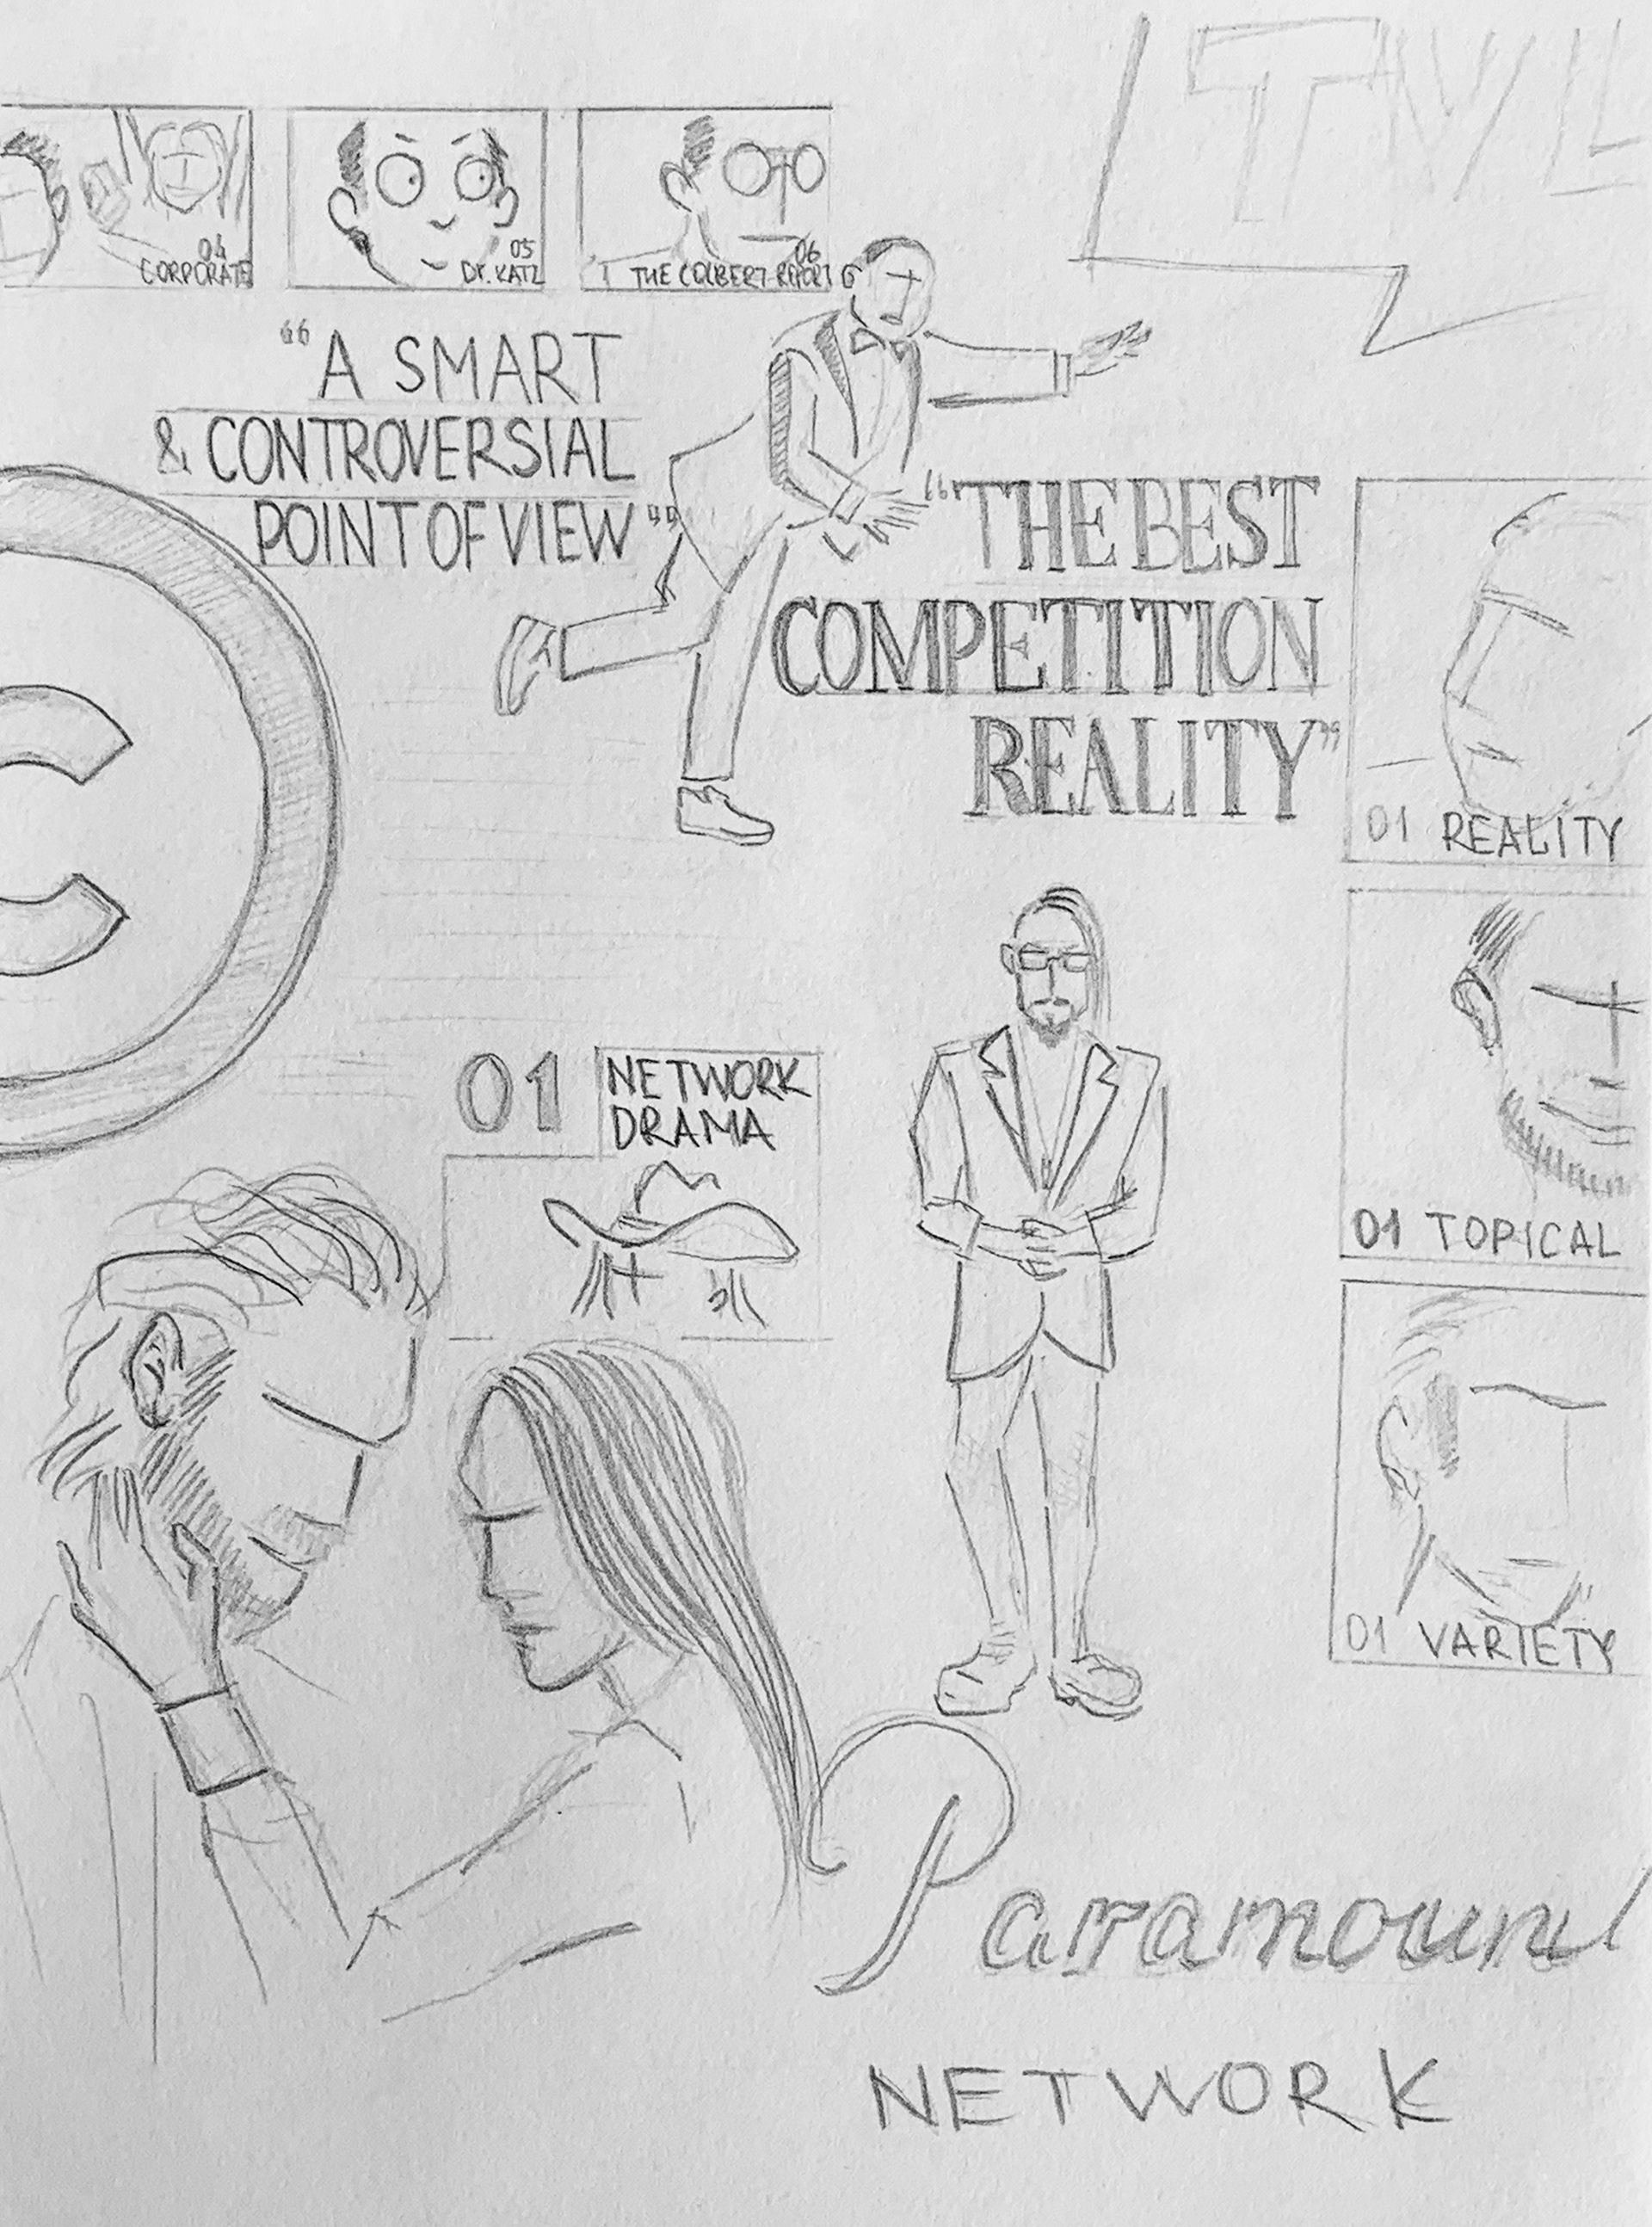 04
CORPORATE
05
Dr. KATZ
06
THE COLBERT REPORT
“A SMART
& CONTROVERSIAL
POINT OF VIEW”
“THE BEST
COMPETITION
REALITY”
01 REALITY
01 NETWORK
DRAMA
01 TOPICAL
01 VARIETY
Paramount
NETWORK